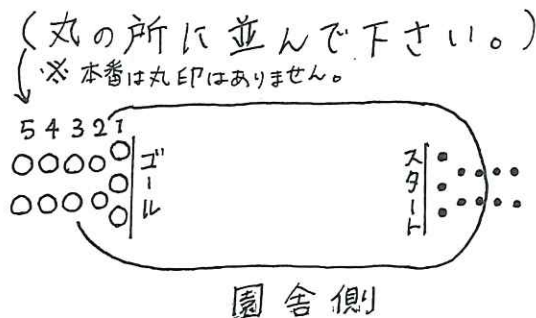 (丸の所に並んで下さい。)
※本番は丸印はありません。
5 4 3 2 1
ゴール
スタート
園舎側